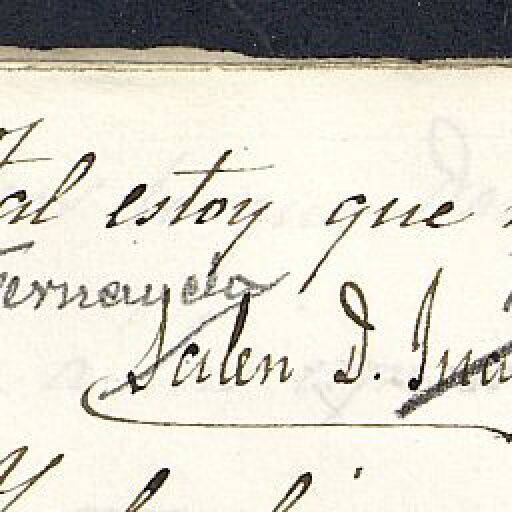 Tal estoy que
Fernanda
Salen D. Jua